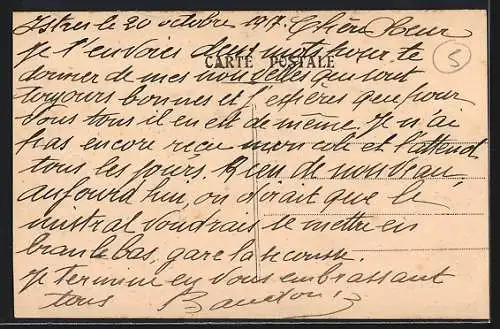 Istres le 20 octobre 191. Chère Sœur
Je t'envoies deux mots pour te
CARTE POSTALE
donner de mes nouvelles qui sont
toujours bonnes et j'espères que pour
vous tous il en est de même. Je n'ai
pas encore reçu mon colis et l'attend
tous les jours. Rien de nouveau
aujourd'hui, on dirait que le
mistral voudrais se mettre en
branle bas, gare la secousse.
Je termine en vous embrassant
tous
5